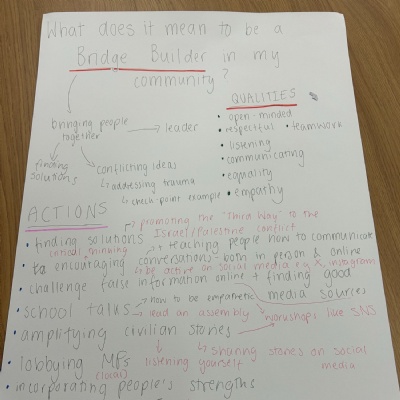 What does it mean to be a
Bridge Builder in my
community?
QUALITIES
• open-minded
• respectful • teamwork
• listening
• communicating
• equality
• empathy
bringing people
together
→ leader
finding
solutions
conflicting ideas
↳ addressing trauma
↳ check-point example
ACTIONS
promoting the "Third Way" to the
Israel/Palestine conflict
• finding solutions
↳ teaching people how to communicate
critical thinking
• encouraging conversations both in person & online
↳ be active on social media e.g X, instagram
• challenge false information online → finding good
media sources
• school talks → how to be empathetic
→ lead an assembly → workshops like SNS
• amplifying civilian stories
↳ sharing stories on social
media
listening yourself
• lobbying MPs
(local)
• incorporating people's strengths